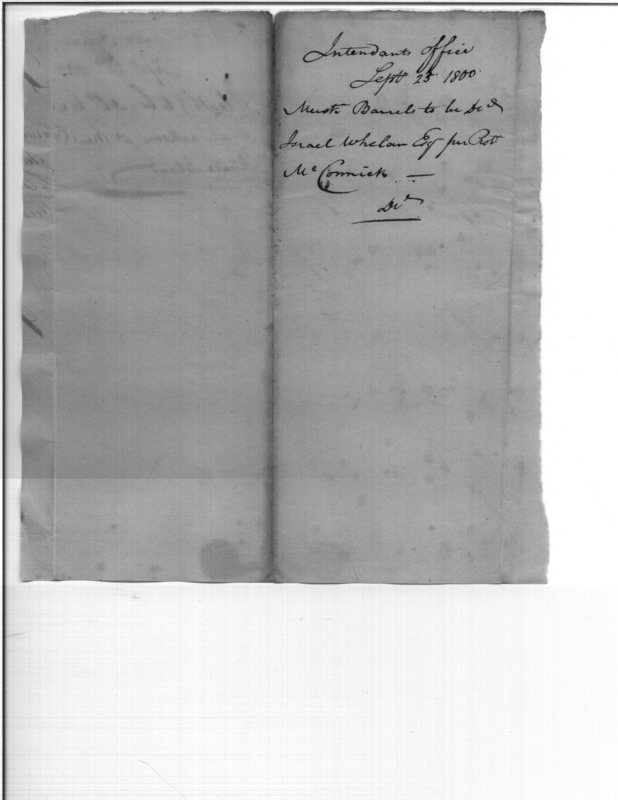 Intendants office
Septr 25 1800
Muskt Barrels to be Dd
Israel Whelan Esqr per Robt
McCormick —
Dd